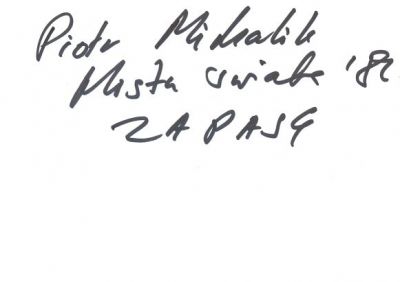 Piotr Michalik
Mistrz świata '82
ZAPASY